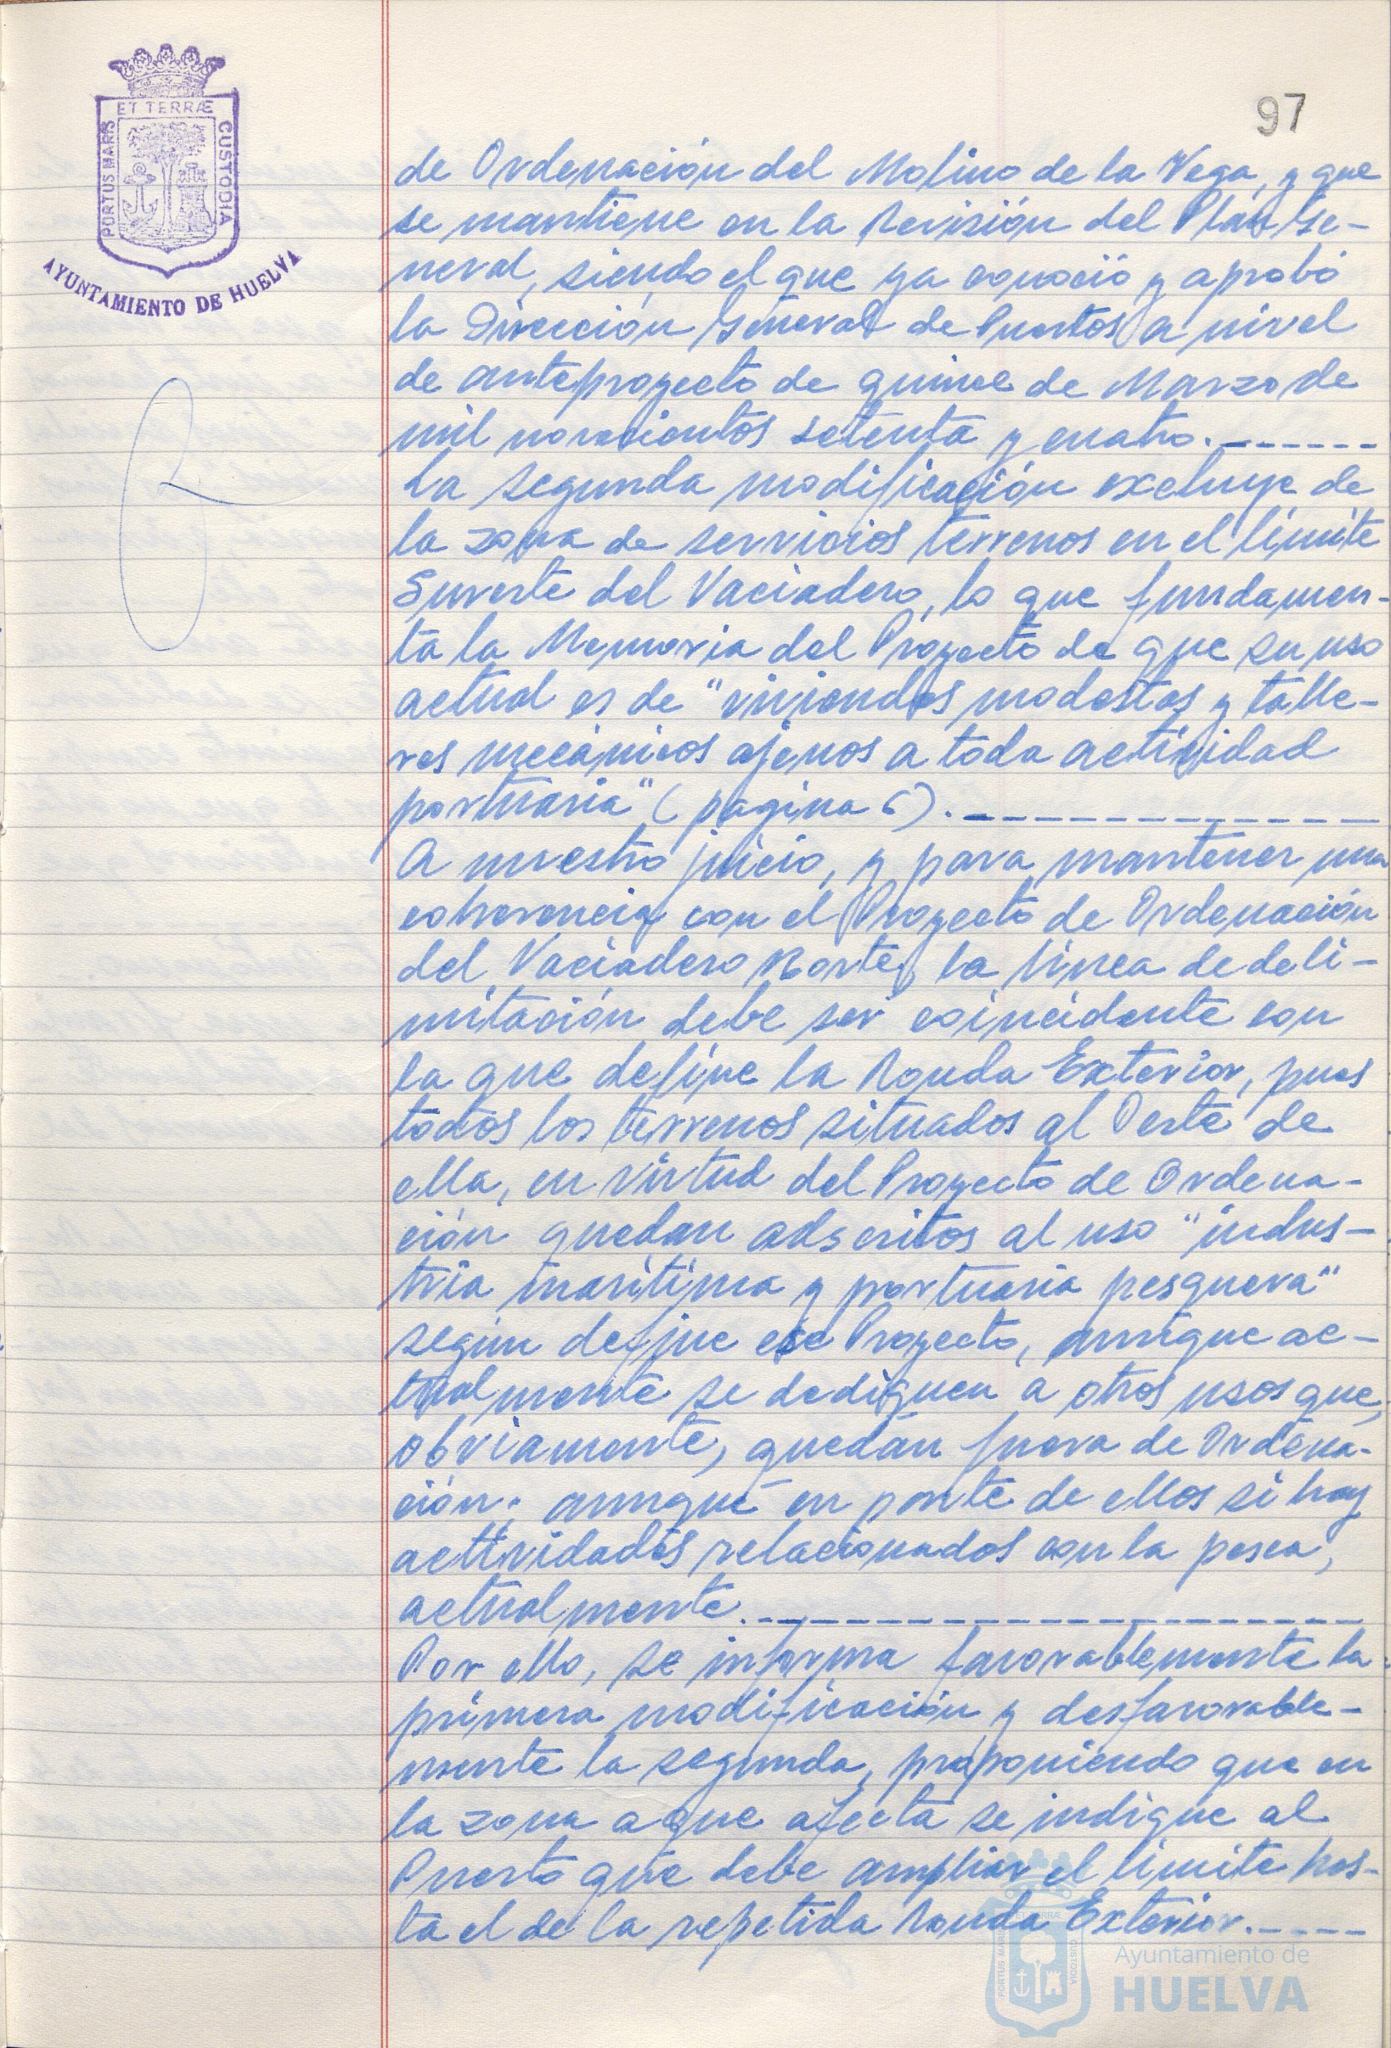 ET TERRÆ
PORTUS MARIS
CUSTODIA
AYUNTAMIENTO DE HUELVA
97
de Ordenación del Molino de la Vega, y que
se mantiene en la Revisión del Plan Ge-
neral, siendo el que ya conoció y aprobó
la Dirección General de Puertos a nivel
de anteproyecto de quince de Marzo de
mil novecientos setenta y cuatro.------
La segunda modificación excluye de
la zona de servicios terrenos en el límite
Sureste del Vaciadero, lo que fundamen-
ta la Memoria del Proyecto de que su uso
actual es de "viviendas modestas y talle-
res mecánicos ajenos a toda actividad
portuaria" (pagina 6).-------------
A nuestro juicio, y para mantener una
coherencia con el Proyecto de Ordenación
del Vaciadero Norte, la línea de deli-
mitación debe ser coincidente con
la que define la Ronda Exterior, pues
todos los terrenos situados al Oeste de
ella, en virtud del Proyecto de Ordena-
ción quedan adscritos al uso "indus-
tria marítima y portuaria pesquera"
según define ese Proyecto, aunque ac-
tualmente se dediquen a otros usos que,
obviamente, quedan fuera de Ordena-
ción; aunque en parte de ellos si hay
actividades relacionados con la pesca,
actualmente.--------------------
Por ello, se informa favorablemente la
primera modificación y desfavorable-
mente la segunda, proponiendo que en
la zona a que afecta se indique al
Puerto que debe ampliar el límite has-
ta el de la repetida Ronda Exterior.-----
ET TERRÆ
PORTUS MARIS
CUSTODIA
Ayuntamiento de
HUELVA